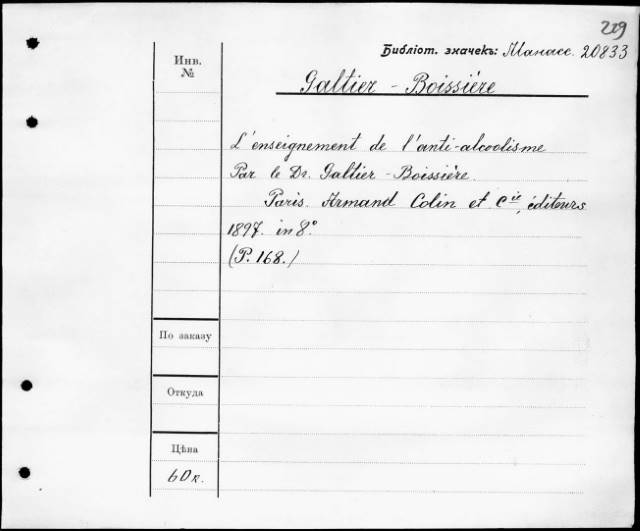 229
Библіот. значекъ: Манасс. 20833
Инв.
№
Galtier - Boissière
L'enseignement de l'anti-alcoolisme
Par le Dr. Galtier - Boissière.
Paris. Armand Colin et Cie, éditeurs
1897. in 8°.
(P. 168.)
По заказу
Откуда
Цѣна
60 к.